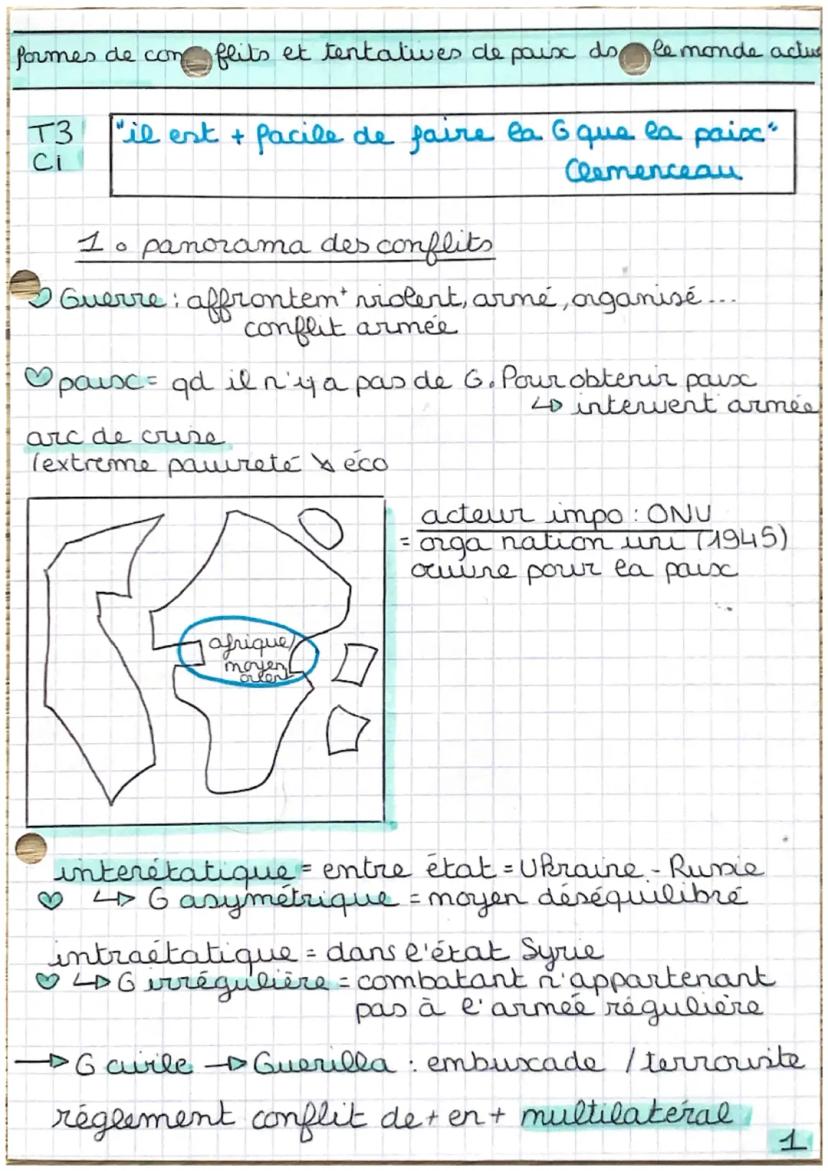 formes de conflits et tentatives de paix ds le monde actu
T3
C1
"il est + facile de faire la G que la paix"
Clemenceau
1. panorama des conflits
Guerre : affrontemt violent, armé, organisé...
conflit armée
paix = qd il n'y a pas de G. Pour obtenir paix
↳ intervent armée
arc de crise
(extreme pauvreté ↘ éco
acteur impo : ONU
= orga nation uni (1945)
œuvre pour la paix
afrique/
moyen
orient
interétatique = entre état = Ukraine - Russie
↳ G asymétrique = moyen déséquilibré
intraétatique = dans l'état Syrie
↳ G irrégulière = combatant n'appartenant
pas à l'armée régulière
→ G civile → Guerilla : embuscade / terroriste
réglement conflit de + en + multilatéral
1